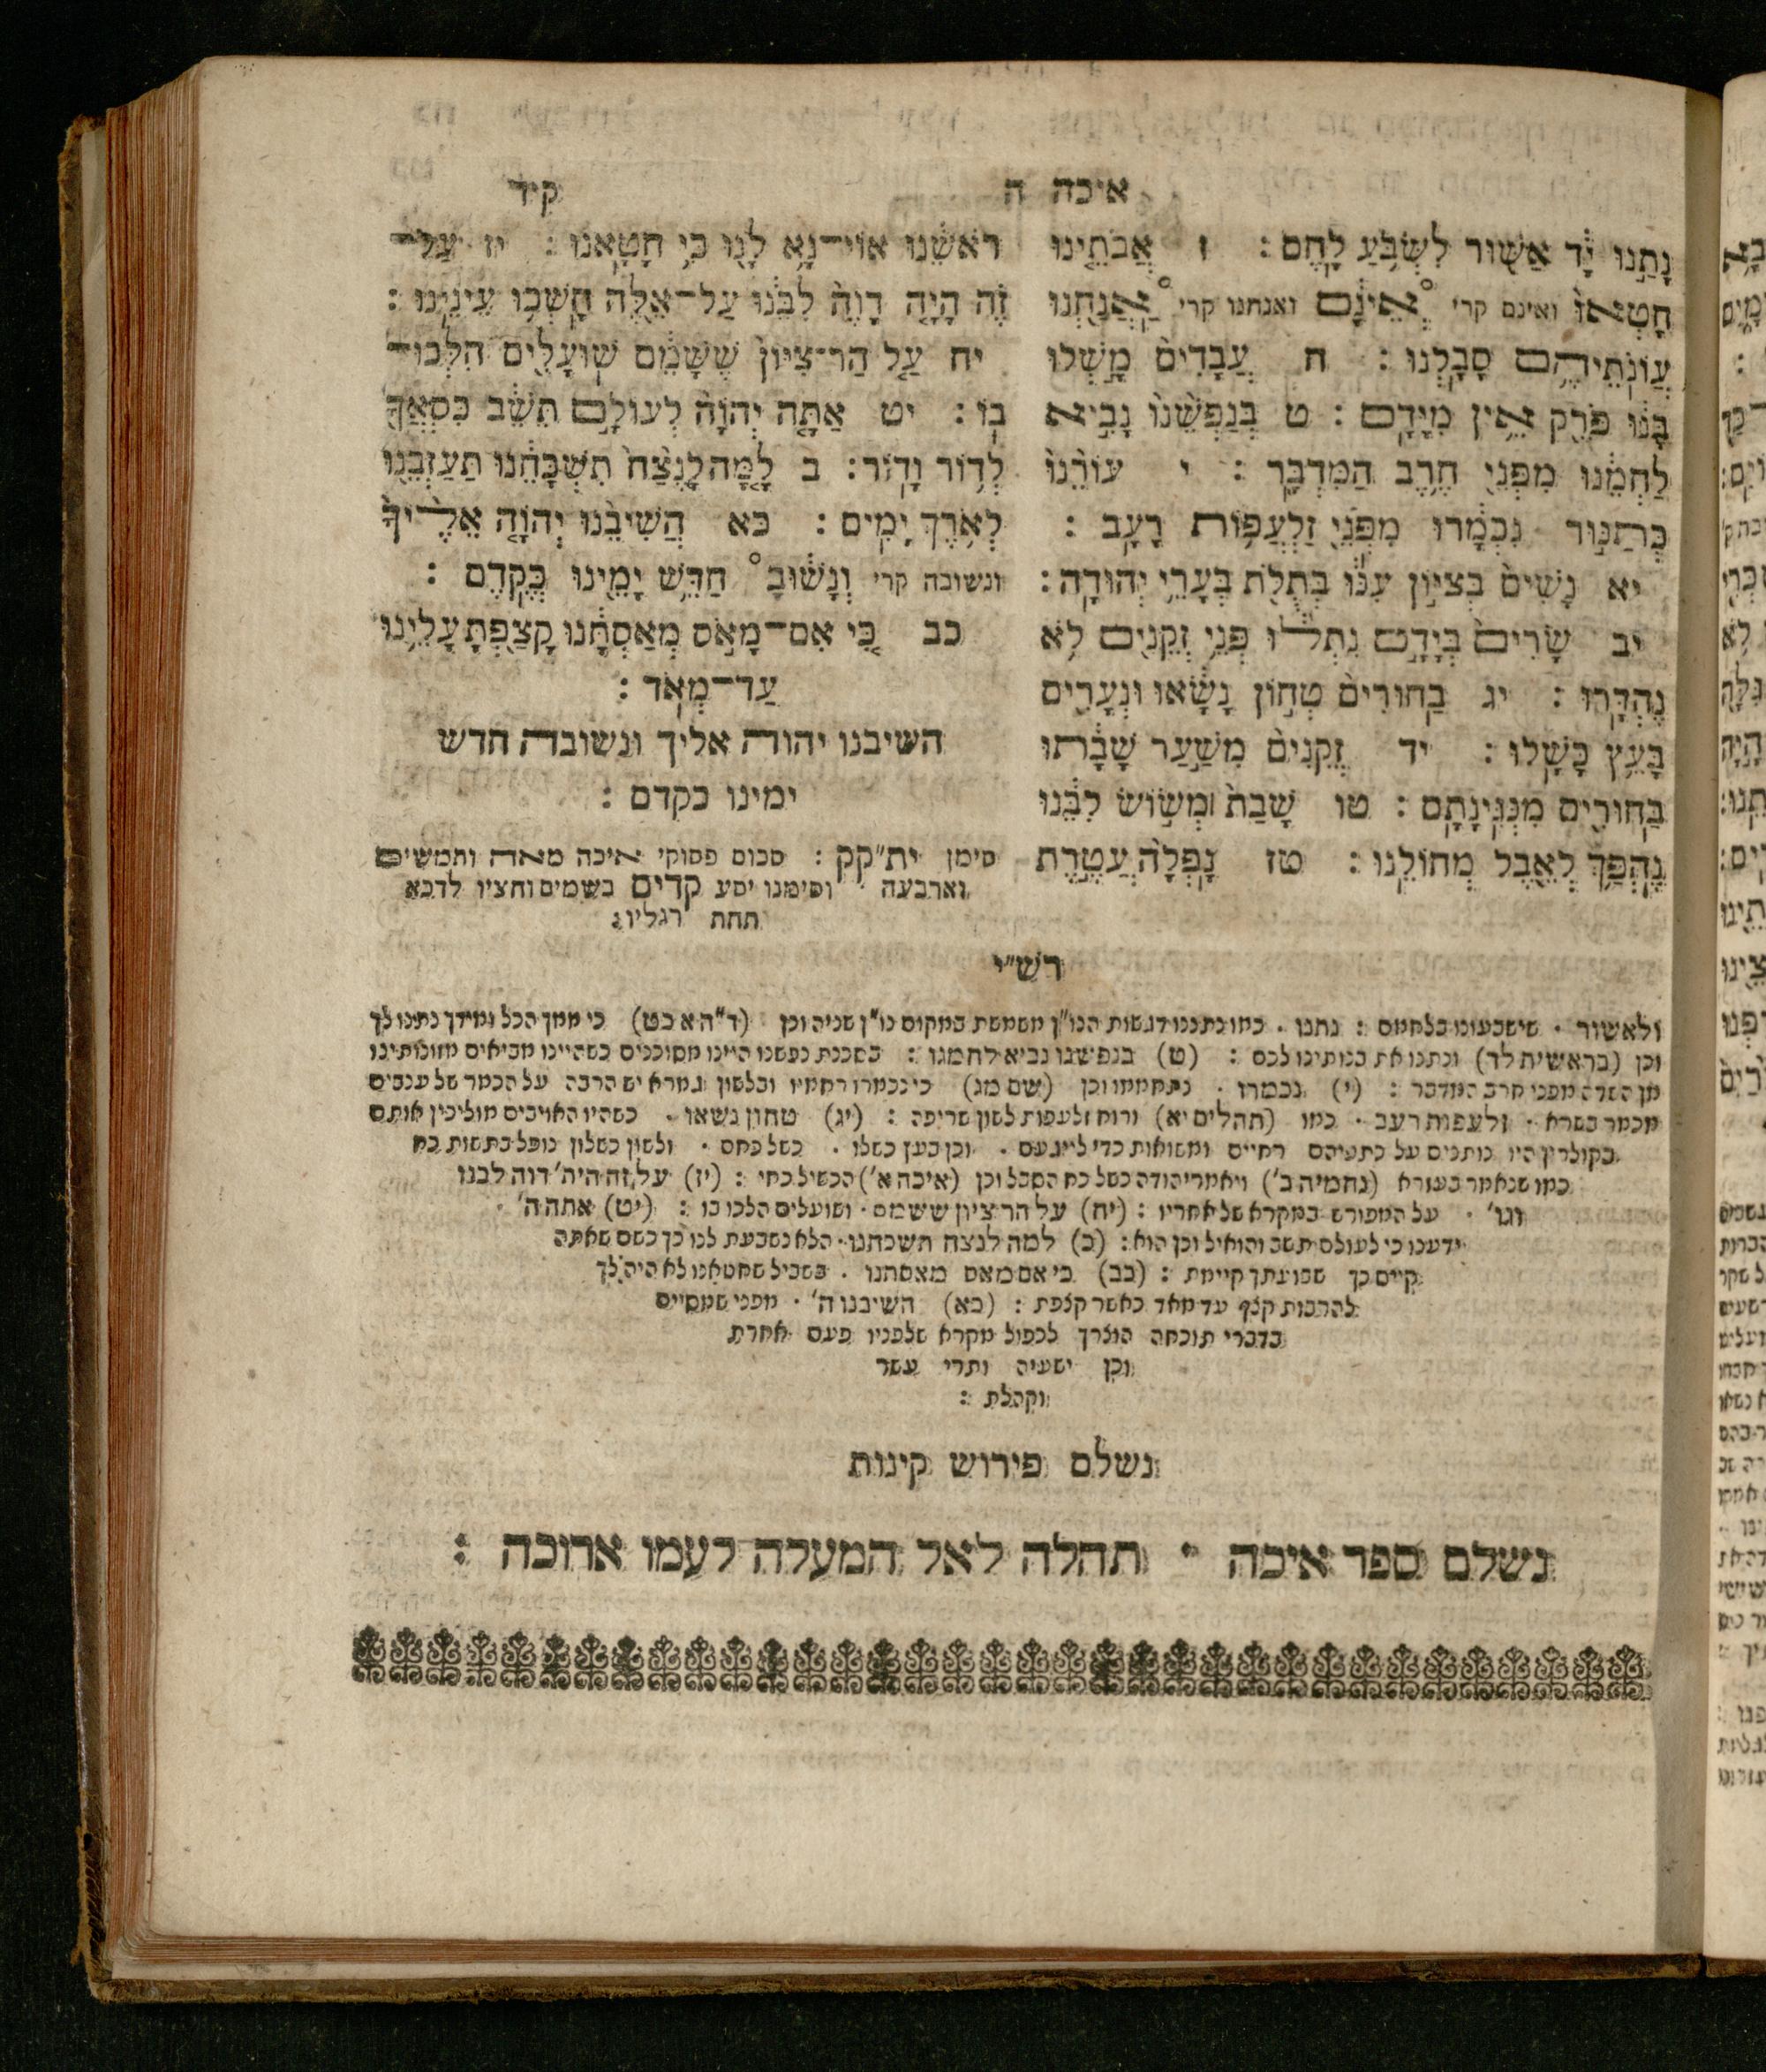 איכה ה קיד
נָתַנּוּ יָד אַשּׁוּר לִשְׂבֹּעַ לָחֶם : ז אֲבֹתֵינוּ
חָטְאוּ ואינם קרי אֵינָם ואנחנו קרי אֲנַחְנוּ
עֲוֹנֹתֵיהֶם סָבָלְנוּ : ח עֲבָדִים מָשְׁלוּ
בָנוּ פֹּרֵק אֵין מִיָּדָם : ט בְּנַפְשֵׁנוּ נָבִיא
לַחְמֵנוּ מִפְּנֵי חֶרֶב הַמִּדְבָּר : י עוֹרֵנוּ
כְּתַנּוּר נִכְמָרוּ מִפְּנֵי זַלְעֲפוֹת רָעָב :
יא נָשִׁים בְּצִיּוֹן עִנּוּ בְּתֻלֹת בְּעָרֵי יְהוּדָה :
יב שָׂרִים בְּיָדָם נִתְלוּ פְּנֵי זְקֵנִים לֹא
נֶהְדָּרוּ : יג בַּחוּרִים טְחוֹן נָשָׂאוּ וּנְעָרִים
בָּעֵץ כָּשָׁלוּ : יד זְקֵנִים מִשַּׁעַר שָׁבָתוּ
בַּחוּרִים מִנְּגִינָתָם : טו שָׁבַת מְשׂוֹשׂ לִבֵּנוּ
נֶהְפַּךְ לְאֵבֶל מְחוֹלֵנוּ : טז נָפְלָה עֲטֶרֶת
רֹאשֵׁנוּ אוֹי־נָא לָנוּ כִּי חָטָאנוּ : יז עַל־
זֶה הָיָה דָוֶה לִבֵּנוּ עַל־אֵלֶּה חָשְׁכוּ עֵינֵינוּ :
יח עַל הַר־צִיּוֹן שֶׁשָּׁמֵם שׁוּעָלִים הִלְּכוּ־
בוֹ : יט אַתָּה יְהוָה לְעוֹלָם תֵּשֵׁב כִּסְאֲךָ
לְדוֹר וָדוֹר : כ לָמָּה לָנֶצַח תִּשְׁכָּחֵנוּ תַּעַזְבֵנוּ
לְאֹרֶךְ יָמִים : כא הֲשִׁיבֵנוּ יְהוָה אֵלֶיךָ
ונשובה קרי וְנָשׁוּבָ חַדֵּשׁ יָמֵינוּ כְּקֶדֶם :
כב כִּי אִם־מָאֹס מְאַסְתָּנוּ קָצַפְתָּ עָלֵינוּ
עַד־מְאֹד :
השיבנו יהוה אליך ונשובה חדש
ימינו כקדם :
סימן ית״קק : סכום פסוקי איכה מאה וחמשים
וארבעה וסימנו יסע קדים בשמים וחציו לדכא
תחת רגליו :
רש״י
ולאשור · שישבעונו בלחמם : נתנו · כמו נתננו דגשות הנו״ן משמשת במקום נו״ן שניה וכן (ד״ה א כט) כי ממך הכל ומידך נתנו לך
וכן (בראשית לד) ונתנו את בנותינו לכם : (ט) בנפשנו נביא לחמנו : בסכנת נפשנו היינו מסוכנים כשהיינו מביאים מזונותינו
מן השדה מפני חרב המדבר : (י) נכמרו · נתחממו וכן (שם מג) כי נכמרו רחמיו ובלשון גמרא יש הרבה על הכמר של ענבים
מכמר בשרא · זלעפות רעב · כמו (תהלים יא) ורוח זלעפות לשון שריפה : (יג) טחון נשאו · כשהיו האויבים מוליכין אותם
בקולרין היו נותנים על כתפיהם רחיים ומשואות כדי לייגעם · וכן בעץ כשלו · כשל כחם · ולשון כשלון נופל בתשות כח
כמו שנאמר בעזרא (נחמיה ב׳) ויאמר יהודה כשל כח הסבל וכן (איכה א׳) הכשיל כחי : (יז) על זה היה׳ דוה לבנו
וגו׳ · על המפורש במקרא של אחריו : (יח) על הר ציון ששמם · ושועלים הלכו בו : (יט) אתה ה׳ ·
ידענו כי לעולם תשב והואיל וכן הוא : (כ) למה לנצח תשכחנו · הלא נשבעת לנו כך כשם שאתה
קיים כך שבועתך קיימת : (כב) כי אם מאס מאסתנו · בשביל שחטאנו לא היה לך
להרבות קצף עד מאד כאשר קצפת : (כא) השיבנו ה׳ · מפני שמסיים
בדברי תוכחה הוצרך לכפול מקרא שלפניו פעם אחרת
וכן ישעיה ותרי עשר
וקהלת :
נשלם פירוש קינות
נשלם ספר איכה · תהלה לאל המעלה לעמו ארוכה :